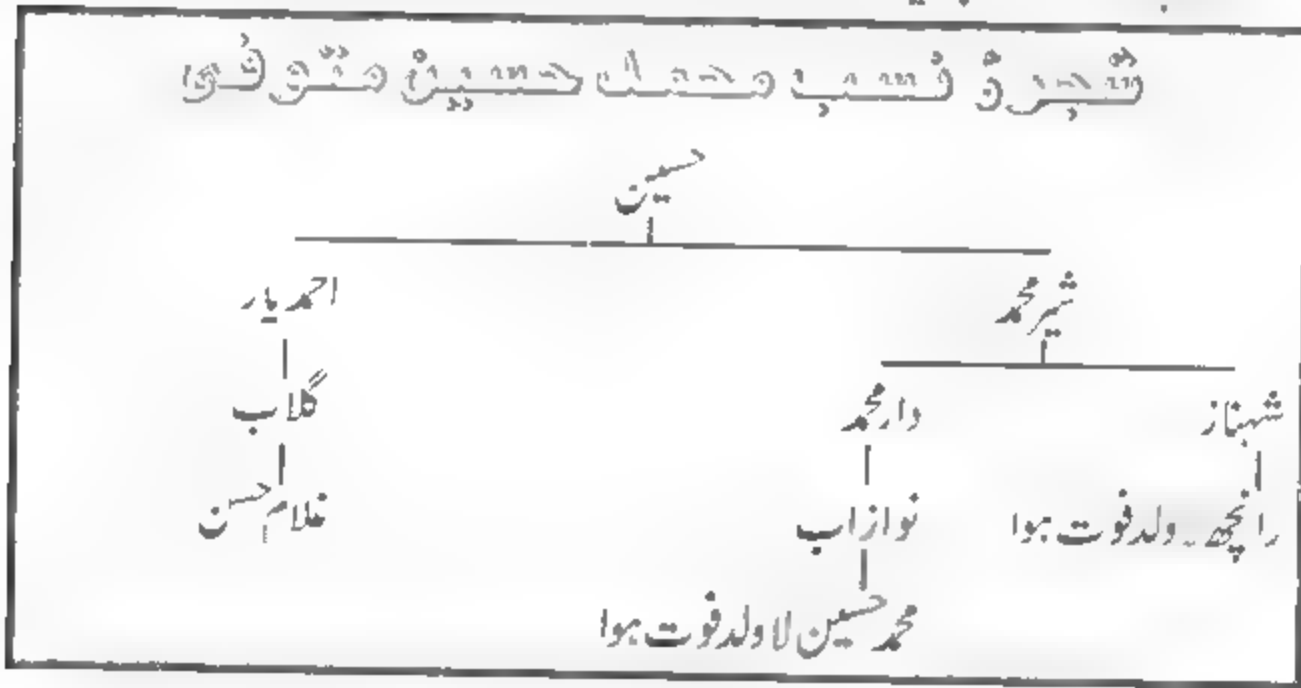 شجرۂ نسب محمد حسین متوفی
حسین
شیر محمد احمد یار
شہناز دار محمد گلاب
رانجھہ۔ ولد فوت ہوا نوازاب غلام حسن
محمد حسین لا ولد فوت ہوا